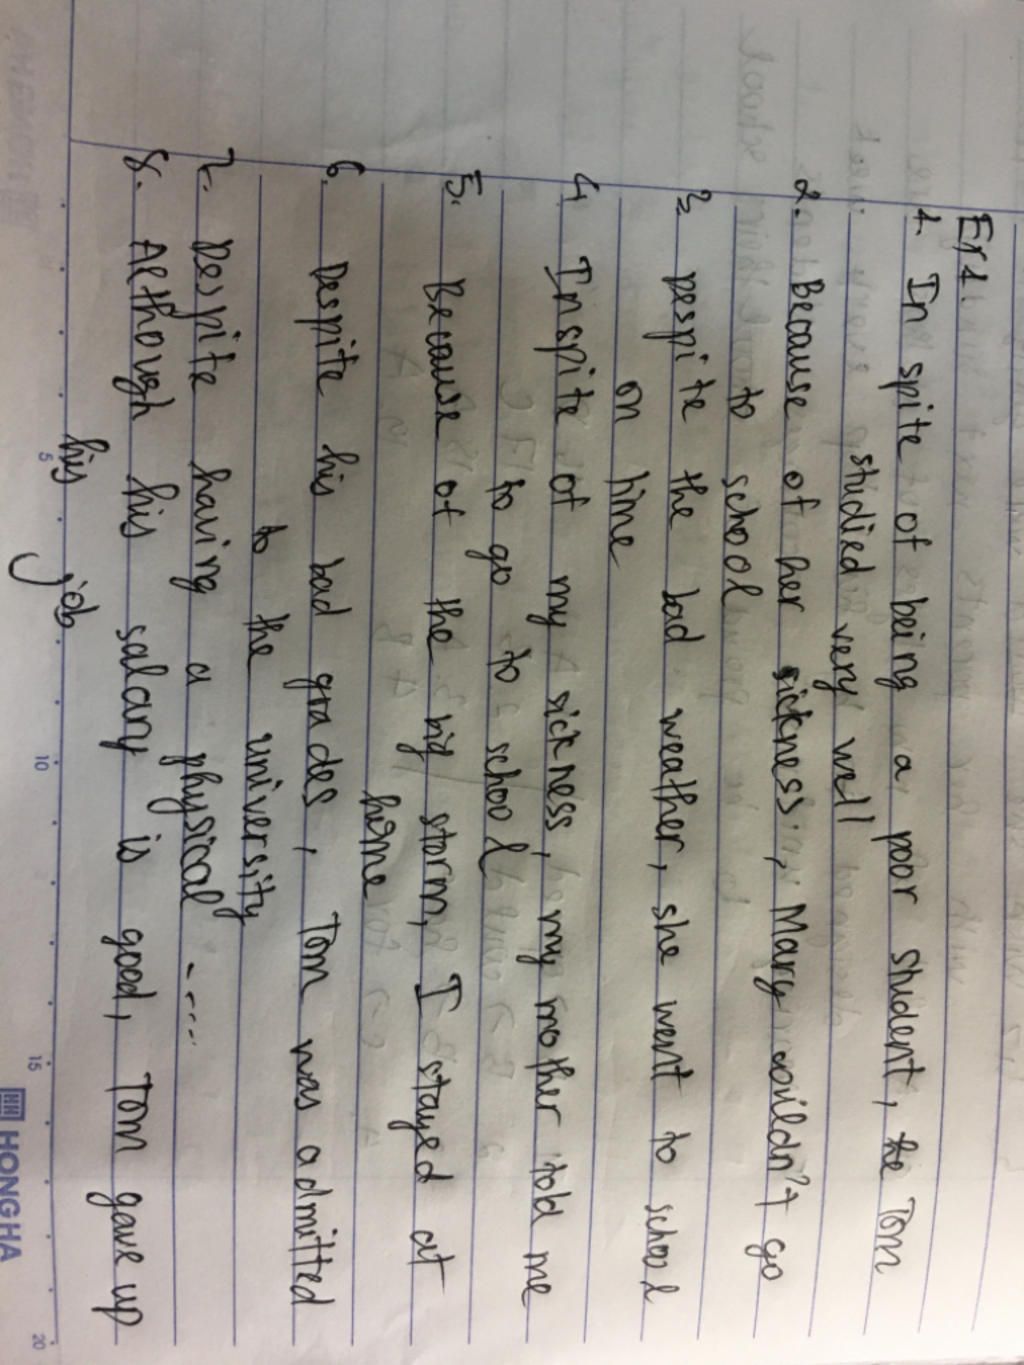 Ex 1.
1. In spite of being a poor student, Tom
studied very well
2. Because of her sickness, Mary couldn't go
to school
3. Despite the bad weather, she went to school
on time
4. Inspite of my sickness, my mother told me
to go to school
5. Because of the big storm, I stayed at
home
6. Despite his bad grades, Tom was admitted
to the university
7. Despite having a physical .....
8. Although his salary is good, Tom gave up
his job
5 10 15 20
HONG HA